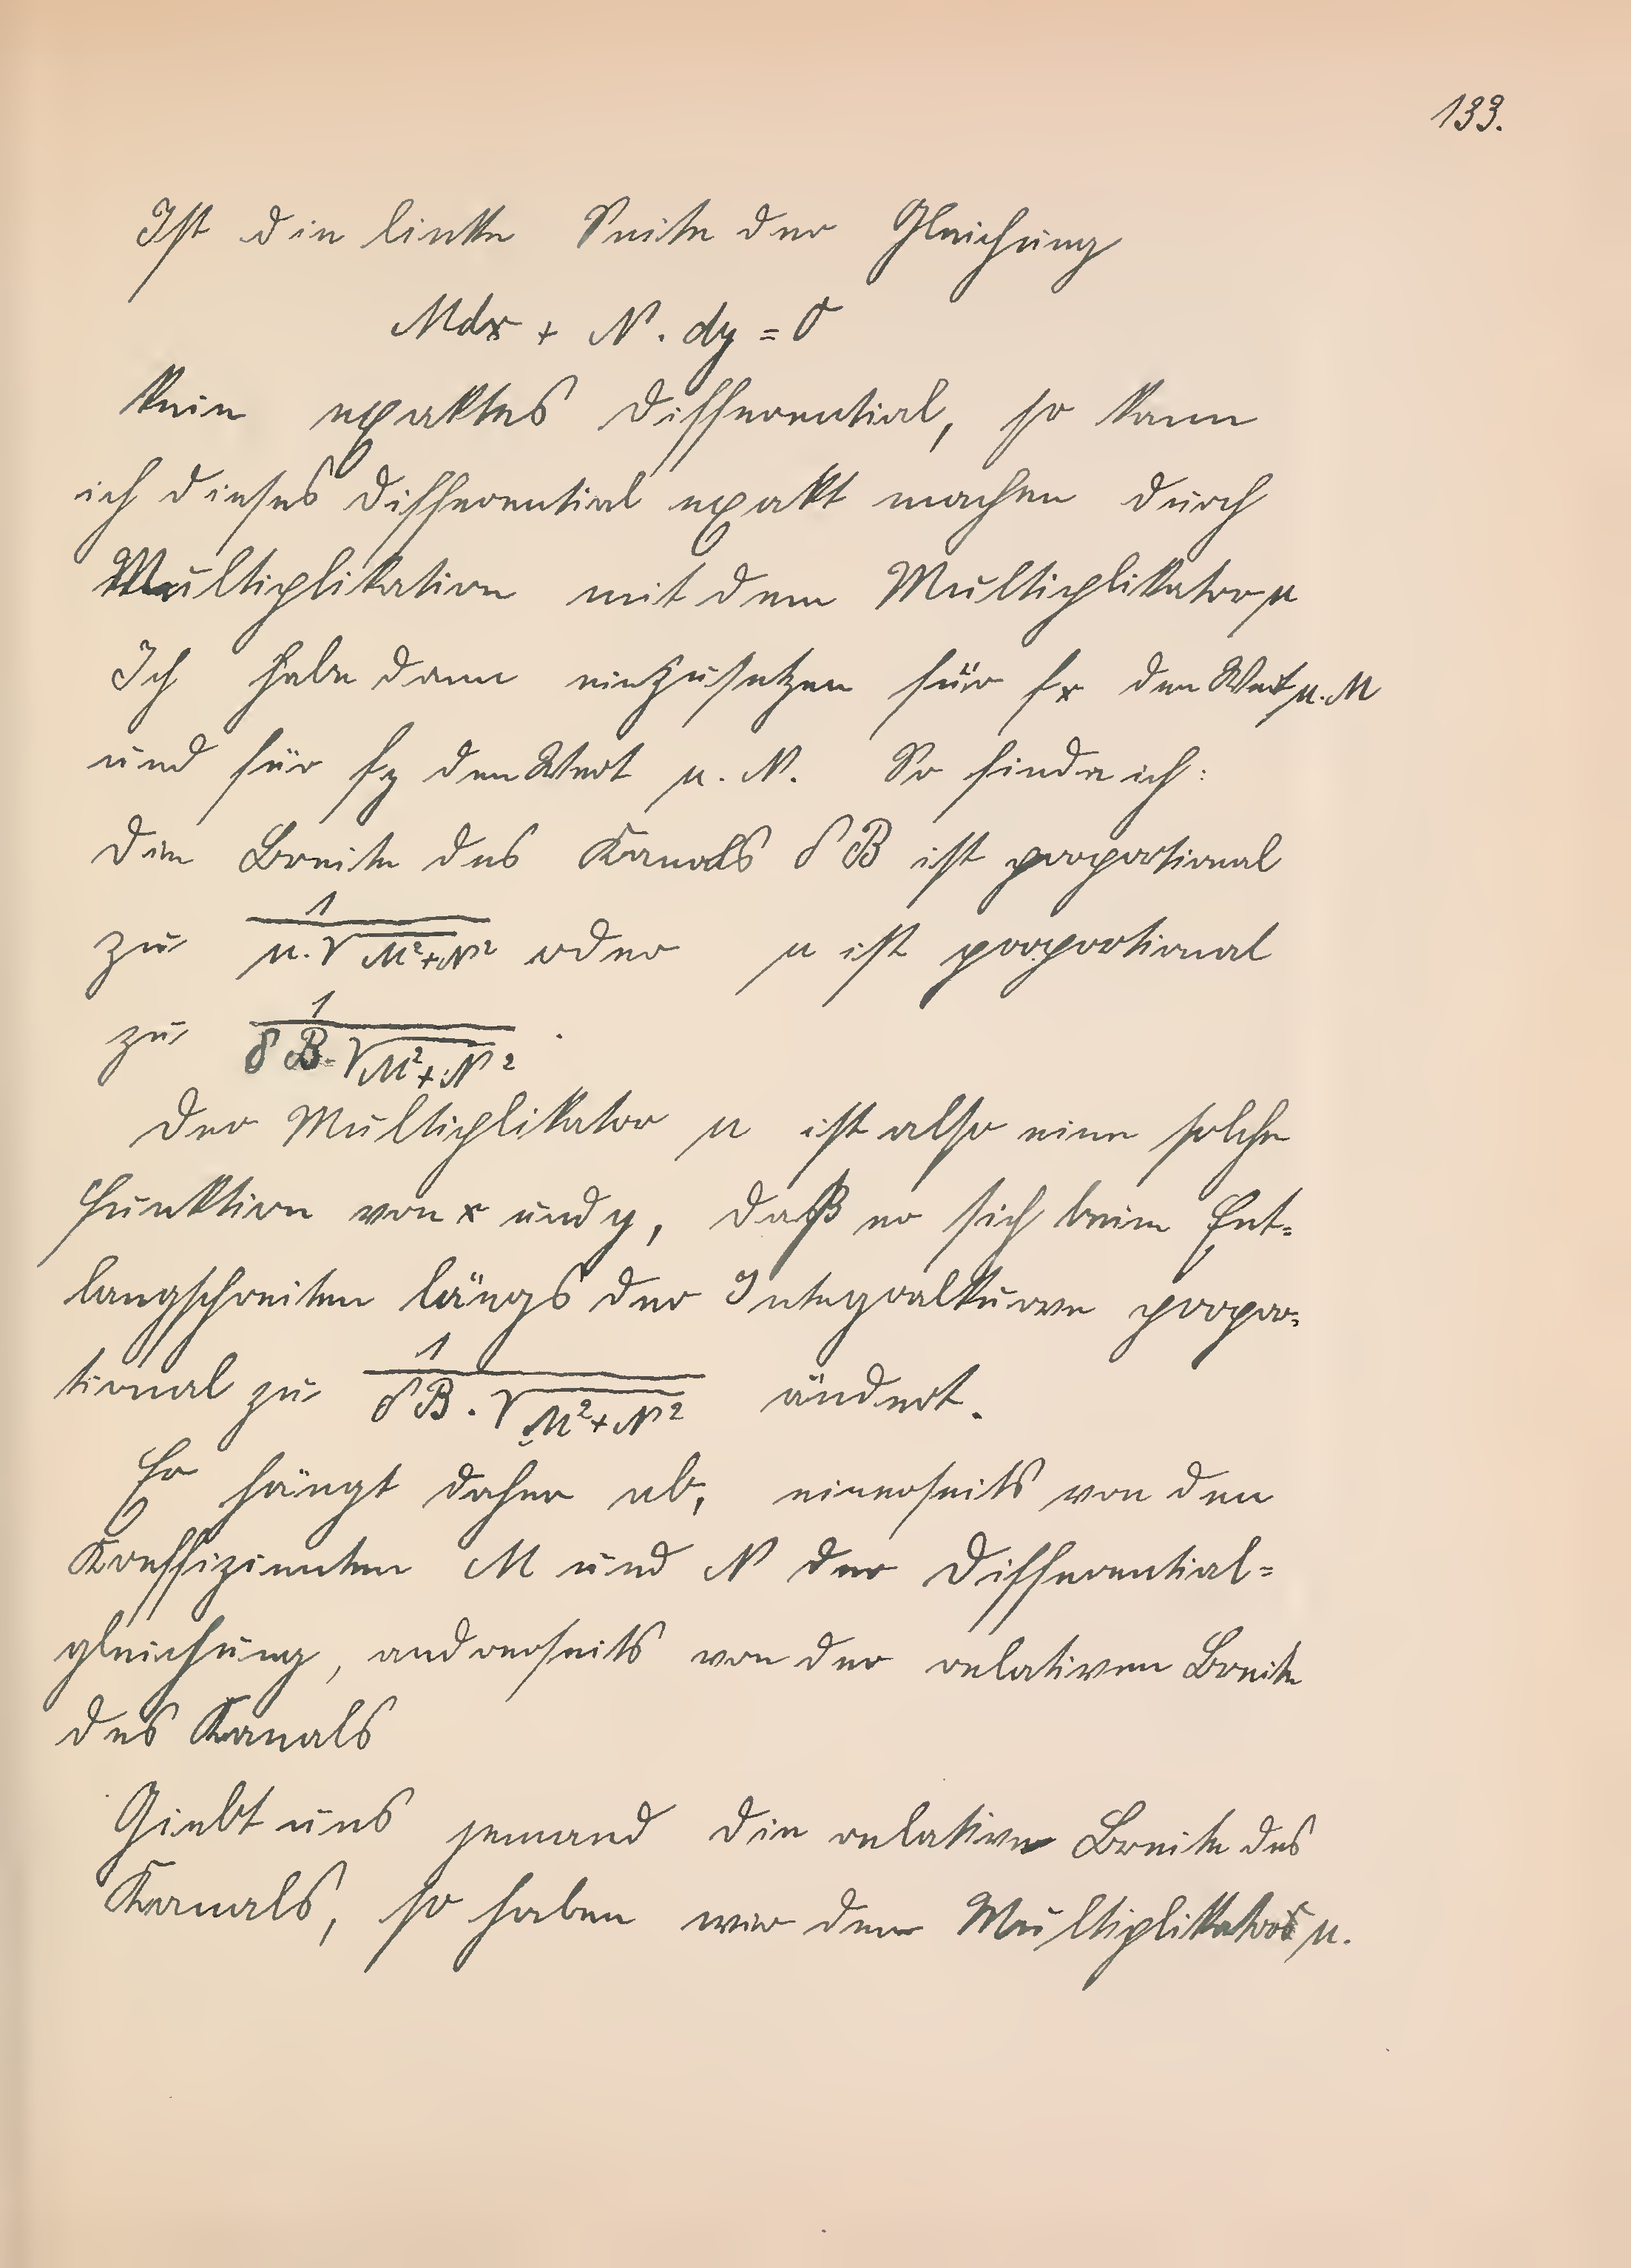 133.
Ist die linke Seite der Gleichung
Mdx + N . dy = 0
kein exaktes Differential, so kann
ich dieses Differential exakt machen durch
Multiplikation mit dem Multiplikator μ
Ich habe dann einzusetzen für fx den Wert μ. M
und für fy den Wert μ. N. So finde ich:
Die Breite des Kanals δB ist proportional
zu 1/(μ.√(M²+N²)) oder μ ist proportional
zu 1/(δB.√(M²+N²)) .
Der Multiplikator μ ist also eine solche
Funktion von x und y, daß er sich beim Ent=
langschreiten längs der Integralkurve propor=
tional zu 1/(δB . √(M²+N²)) ändert.
Er hängt daher ab, einerseits von den
Koeffizienten M und N der Differential=
gleichung, andrerseits von der relativen Breite
des Kanals
Giebt uns jemand die relative Breite des
Kanals, so haben wir den Multiplikator μ.